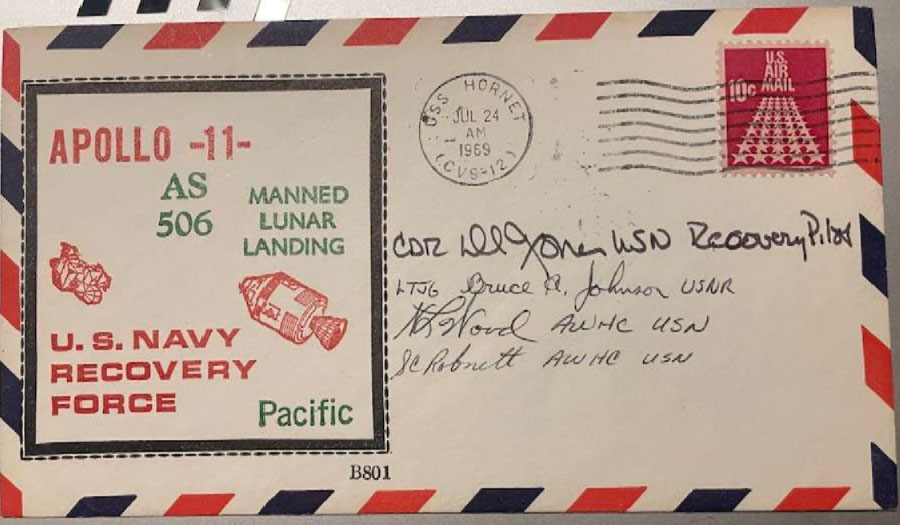 APOLLO -11-
AS
506
MANNED
LUNAR
LANDING
U.S. NAVY
RECOVERY
FORCE
Pacific
B801
USS HORNET
JUL 24
AM
1969
(CVS-12)
U.S.
AIR
MAIL
10c
CDR Jones USN Recovery Pilot
LTJG Bruce A. Johnson USNR
Wood AWHC USN
SC Robnett AWHC USN